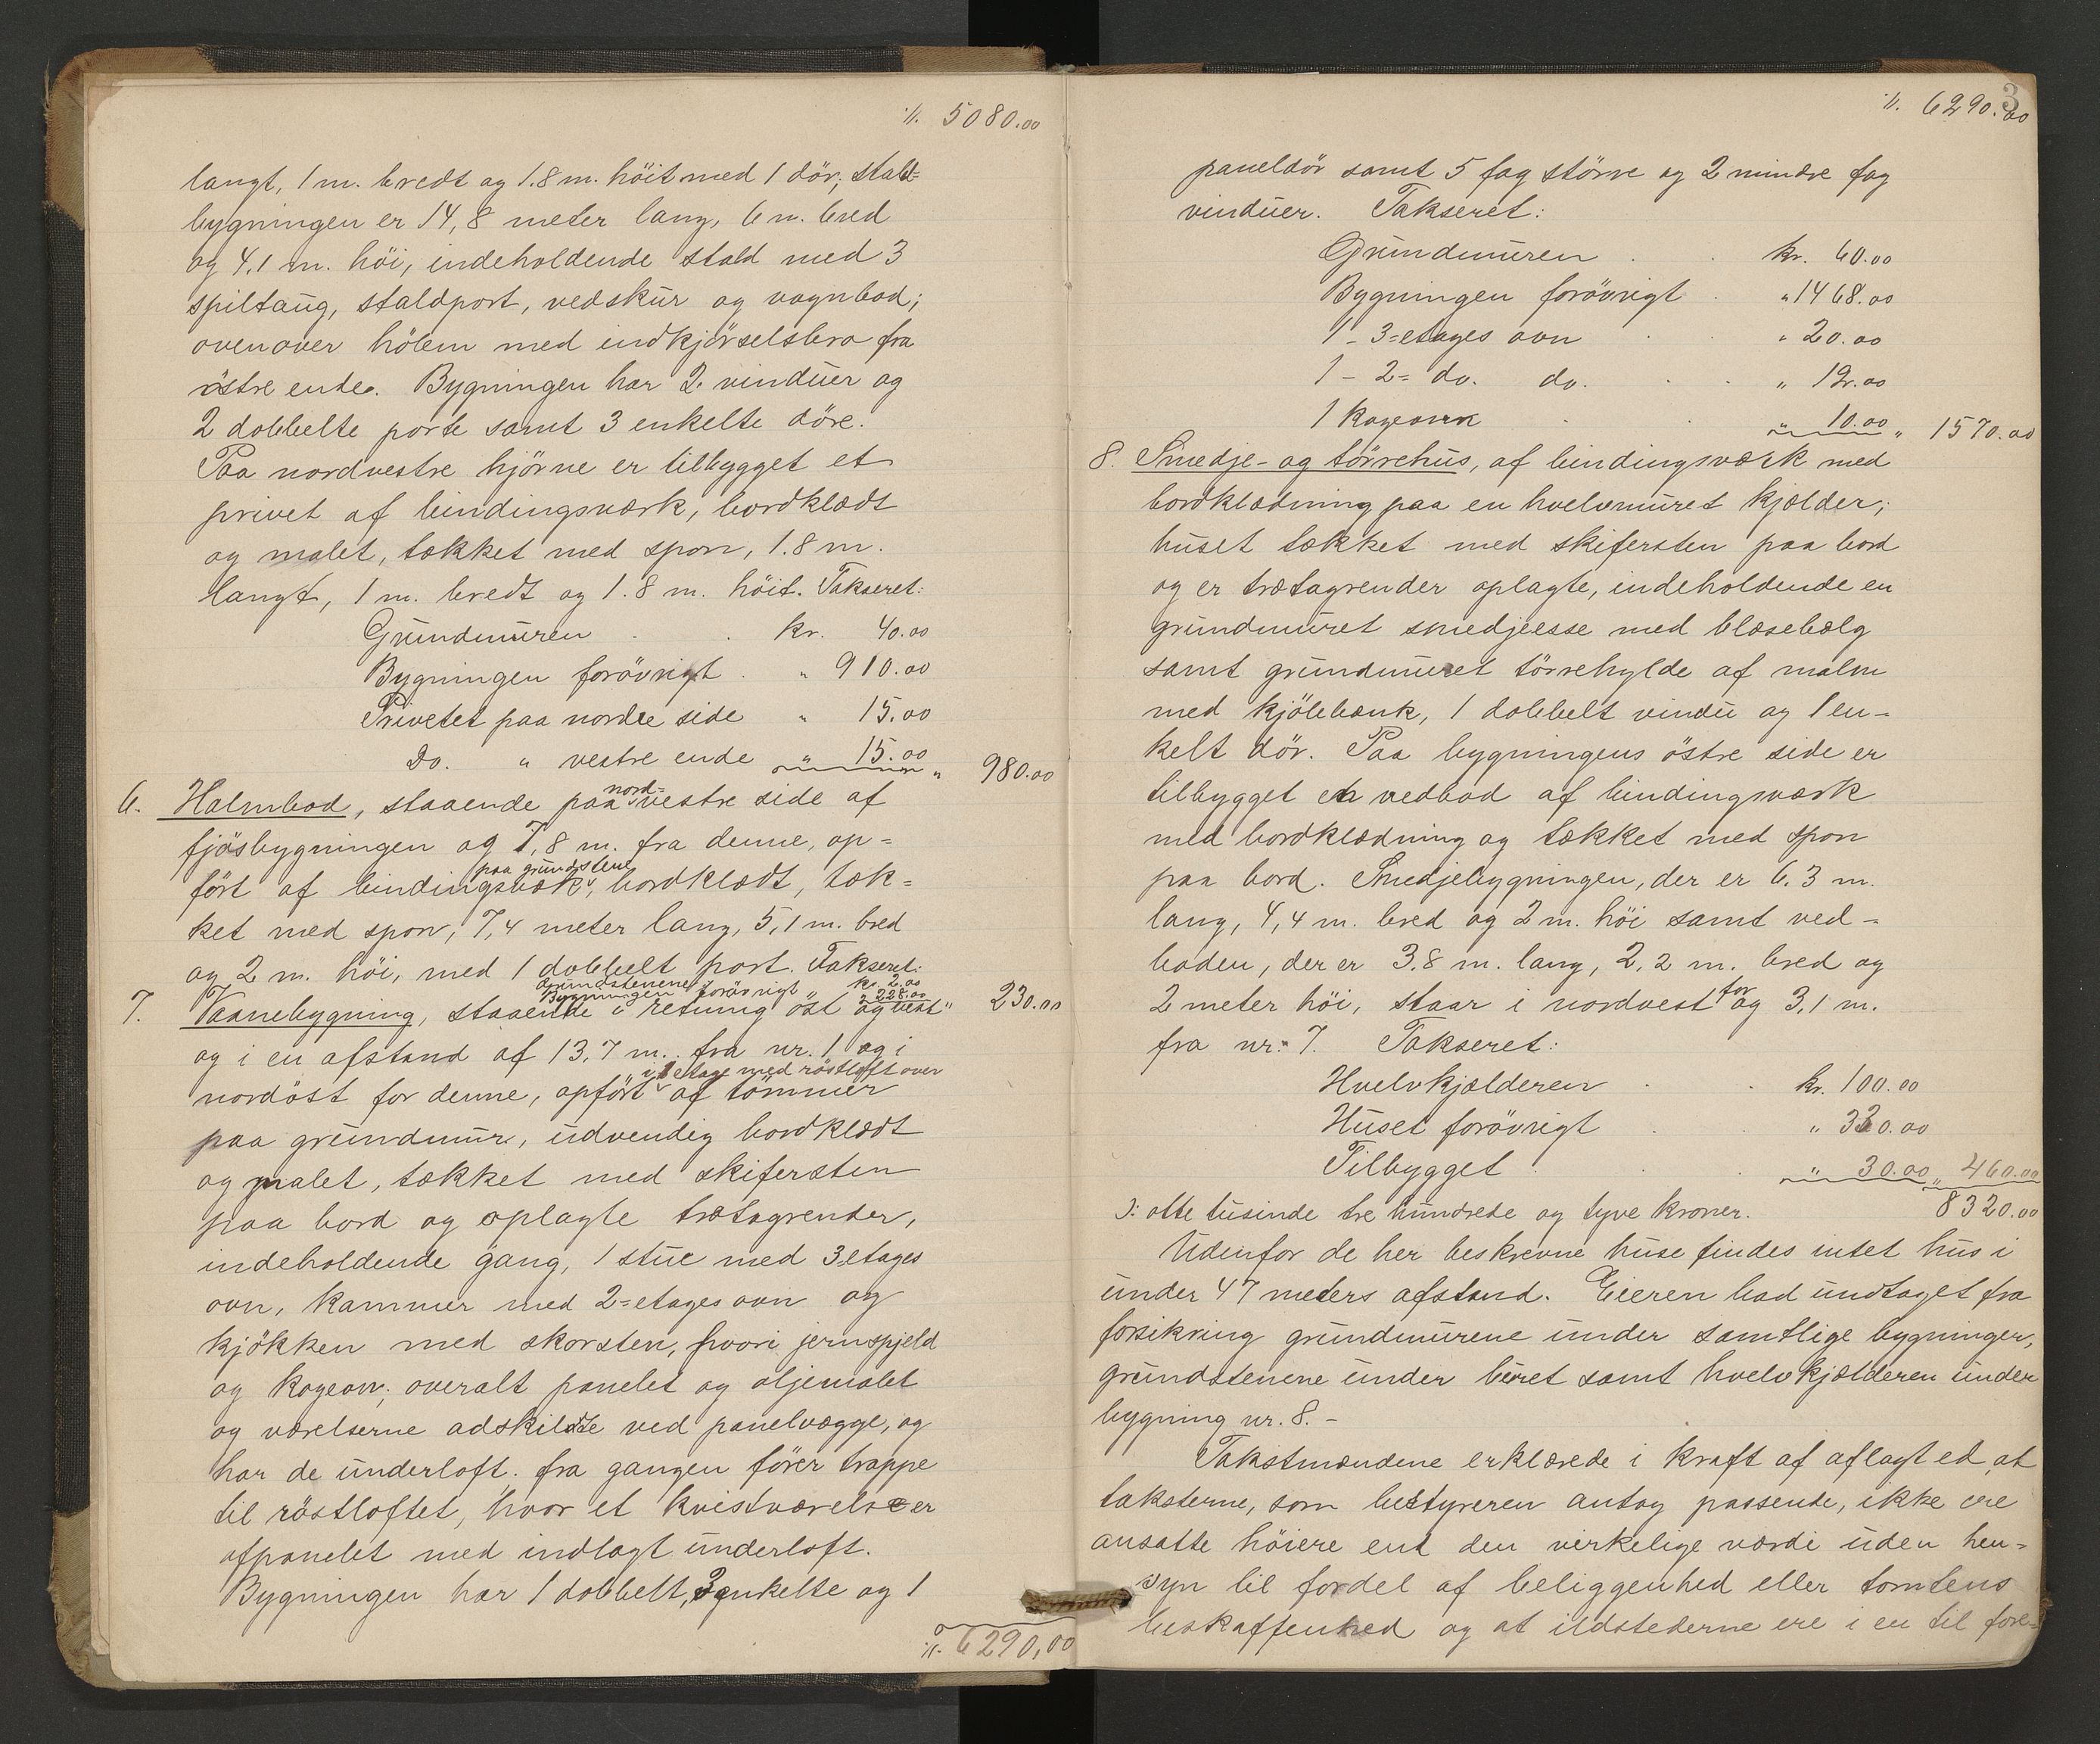 ·/. 5080.00
langt, 1 m. bredt og 1.8 m. höit med 1 dör; stald=
bygningen er 14,8 meter lang, 6 m. bred
og 4,1 m. höi, indeholdende stald med 3
spiltaug, staldport, vedskur og vognbod;
ovenover hölem med indkjörselsbro fra
östre ende. Bygningen har 2 vinduer og
2 dobbelte porte samt 3 enkelte döre.
Paa nordvestre hjörne er tilbygget et
privet af bindingsværk, bordklædt
og malet, tækket med spon, 1.8 m.
langt, 1 m. bredt og 1.8 m. höit. Takseret:
Grundmuren . . kr. 40.00
Bygningen forövrigt . " 910.00
Privetet paa nordre side " 15.00
Do. " vestre ende " 15.00 " 980.00
6. Halmbod, staaende paa nord=vestre side af
fjösbygningen og 7,8 m. fra denne, op=
fört af bindingsværk paa grundstene, bordklædt, tæk=
ket med spon, 7,4 meter lang, 5,1 m. bred
og 2 m. höi, med 1 dobbelt port. Takseret:
Grundstenene kr. 2.00
Bygningen forövrigt " 228.00 " 230.00
7. Vaanebygning, staaende i retning öst og vest
og i en afstand af 13,7 m. fra nr. 1 og i
nordöst for denne, opfört i 1 etage med röstloft over af tömmer
paa grundmur, udvendig bordklædt
og malet, tækket med skifersten
paa bord og oplagte trætagrender,
indeholdende gang, 1 stue med 3 etages
ovn, kammer med 2=etages ovn og
kjökken med skorsten, hvori jernspjeld
og kogeovn; overalt panelet og oljemalet
og værelserne adskildte ved panelvægge, og
har de underloft. fra gangen förer trappe
til röstloftet, hvor et kvistværelse er
afpanelet med indlagt underloft.
Bygningen har 1 dobbelt, 3 enkelte og 1
·/. 6290,00
3
·/. 6290.00
paneldör samt 5 fag större og 2 mindre fag
vinduer. Takseret:
Grundmuren . . kr. 60.00
Bygningen forövrigt . " 1468.00
1 - 3=etages ovn . . " 20.00
1 - 2= do. do. . . " 12.00
1 Kogeovn . . " 10.00 " 1570.00
8. Smedje- og törrehus, af bindingsværk med
bordklædning paa en hvelvmuret kjælder;
huset tækket med skifersten paa bord
og er trætagrender oplagte, indeholdende en
grundmuret smedjeesse med blæsebælg
samt grundmuret törrehylde af malm
med kjölebænk, 1 dobbelt vindu og 1 en-
kelt dör. Paa bygningens östre side er
tilbygget en vedbod af bindingsværk
med bordklædning og tækket med spon
paa bord. Smedjebygningen, der er 6.3 m.
lang, 4,4 m. bred og 2 m. höi samt ved-
boden, der er 3.8 m. lang, 2,2 m. bred og
2 meter höi, staar i nordvest for og 3,1 m.
fra nr. 7. Takseret:
Hvelvkjælderen . . kr. 100.00
Huset forövrigt . " 330.00
Tilbygget . . . " 30.00 " 460.00
ɔ: otte tusinde tre hundrede og tyve kroner. 8320.00
Udenfor de her beskrevne huse findes intet hus i
under 47 meters afstand. Eieren bad undtaget fra
forsikring grundmurene under samtlige bygninger,
grundstenene under buret samt hvelvkjælderen under
bygning nr. 8. -
Takstmændene erklærede i kraft af aflagt ed, at
taksterne, som bestyreren antog passende, ikke ere
ansatte höiere end den virkelige værdi uden hen=
syn til fordel af beliggenhed eller tomtens
beskaffenhed og at ildstederne ere i en til fore=